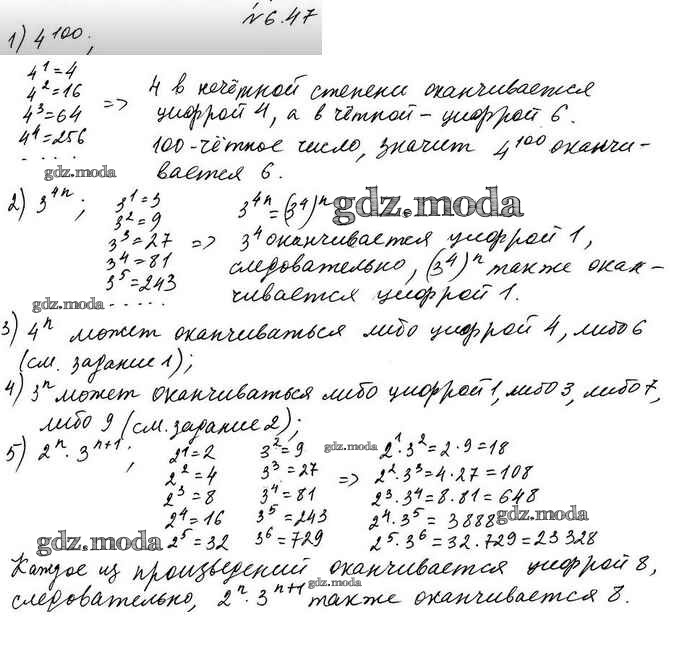 №6.47
1) 4^100;
4^1=4
4^2=16
4^3=64
4^4=256
. . . .
=> 4 в нечётной степени оканчивается
цифрой 4, а в чётной – цифрой 6.
100-чётное число, значит 4^100 оканчи-
вается 6.
gdz.moda
2) 3^4n;
3^1=3
3^2=9
3^3=27
3^4=81
3^5=243
. . . . .
3^4n=(3^4)^n
gdz.moda
=> 3^4 оканчивается цифрой 1,
следовательно, (3^4)^n также окан-
чивается цифрой 1.
gdz.moda
3) 4^n может оканчиваться либо цифрой 4, либо 6
(см. задание 1);
4) 3^n может оканчиваться либо цифрой 1, либо 3, либо 7,
либо 9 (см. задание 2);
5) 2^n · 3^n+1;
2^1=2
2^2=4
2^3=8
2^4=16
2^5=32
3^2=9
3^3=27
3^4=81
3^5=243
3^6=729
gdz.moda
2^1·3^2=2·9=18
=> 2^2·3^3=4·27=108
2^3·3^4=8·81=648
2^4·3^5=3888
2^5·3^6=32·729=23328
gdz.moda
gdz.moda
Каждое из произведений оканчивается цифрой 8,
gdz.moda
следовательно, 2^n·3^n+1 также оканчивается 8.